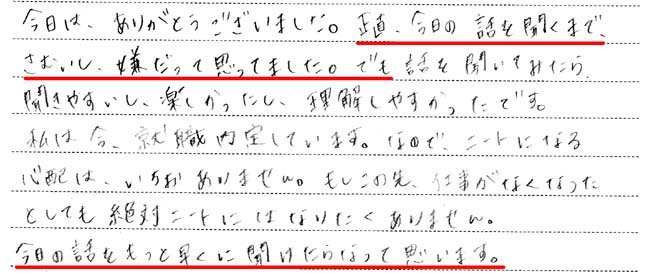 今日は、ありがとうございました。正直、今日の話を聞くまで、
さむいし、嫌だって思ってました。でも話を聞いてみたら
聞きやすいし、楽しかったし、理解しやすかったです。
私は今、就職内定しています。なので、ニートになる
心配は、いちおありません。もしこの先、仕事がなくなった
としても絶対ニートにはなりたくありません。
今日の話をもっと早くに聞けたらなって思います。